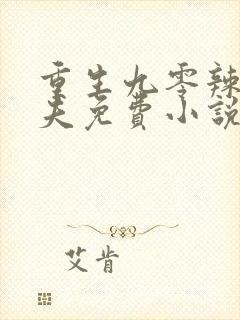 重生九零辣
夫免费小说
艾肯